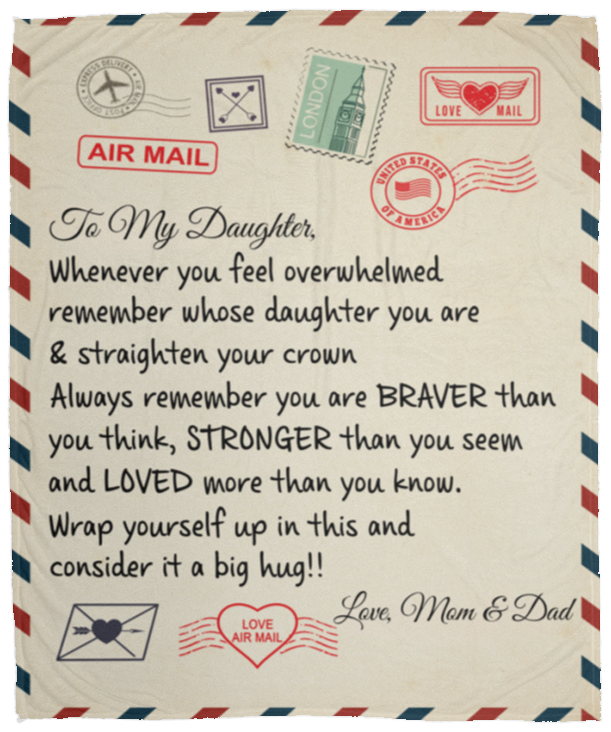 EXPRESS DELIVERY • AIR VAN • POST OFFICE
LONDON
LOVE MAIL
AIR MAIL
UNITED STATES
OF AMERICA
To My Daughter,
Whenever you feel overwhelmed
remember whose daughter you are
& straighten your crown
Always remember you are BRAVER than
you think, STRONGER than you seem
and LOVED more than you know.
Wrap yourself up in this and
consider it a big hug!!
Love, Mom & Dad
LOVE
AIR MAIL